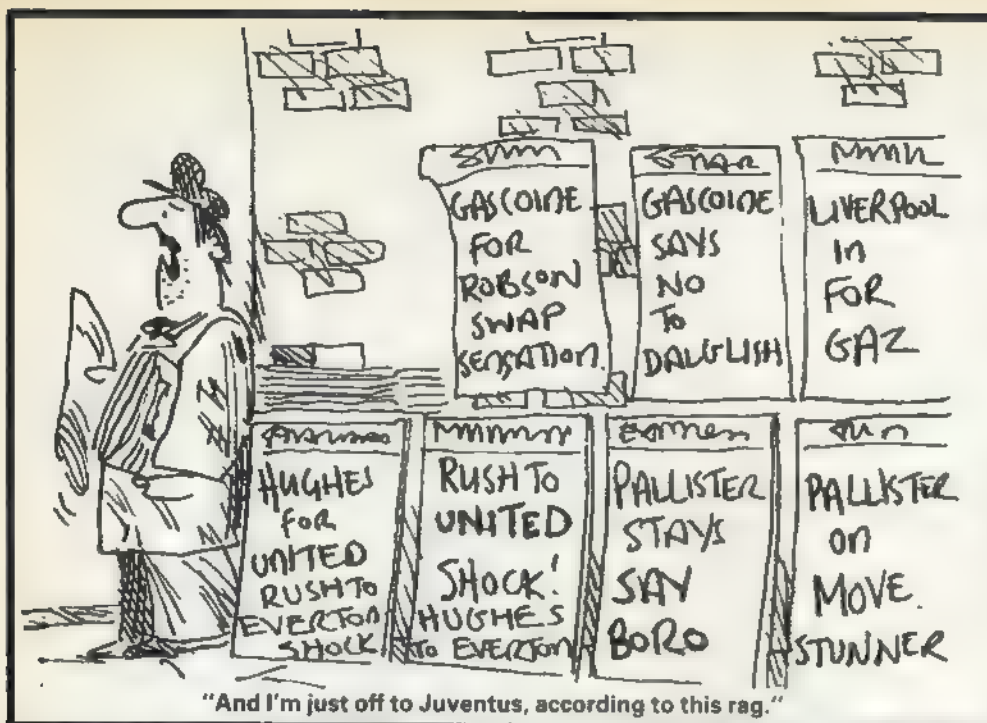 GASCOINE
FOR
ROBSON
SWAP
SENSATION.
STAR
GASCOINE
SAYS
NO
TO
DALGLISH
LIVERPOOL
IN
FOR
GAZ
HUGHES
FOR
UNITED
RUSH TO
EVERTON
SHOCK
RUSH TO
UNITED
SHOCK!
HUGHES
TO EVERTON
PALLISTER
STAYS
SAY
BORO
PALLISTER
ON
MOVE.
STUNNER
"And I'm just off to Juventus, according to this rag."